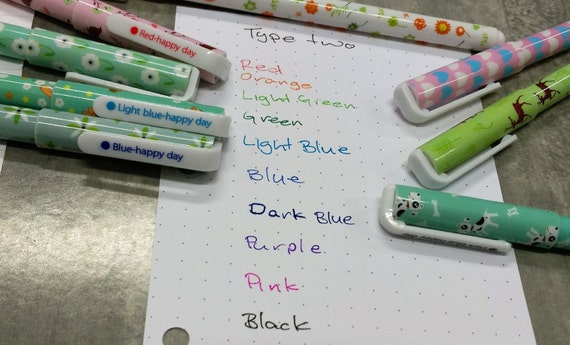 Type two
Red-happy day
Red
Orange
Light Green
Green
Light blue-happy day
Light Blue
Blue-happy day
Blue
Dark Blue
Purple
Pink
Black